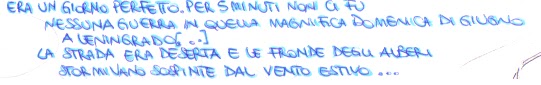 ERA UN GIORNO PERFETTO. PER 5 MINUTI NON CI FU
NESSUNA GUERRA IN QUELLA MAGNIFICA DOMENICA DI GIUGNO
A LENINGRADO[...]
LA STRADA ERA DESERTA E LE FRONDE DEGLI ALBERI
STORMIVANO SOSPINTE DAL VENTO ESTIVO ...